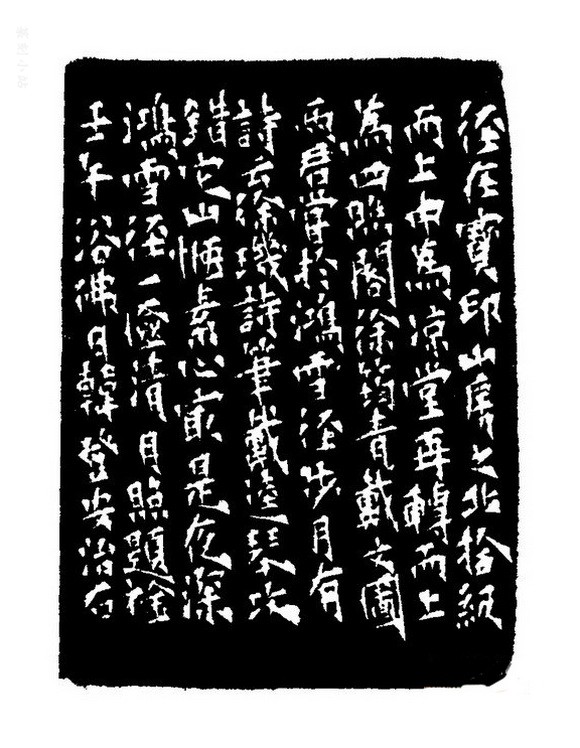 径在寶印山房之北拾級
而上中為凉堂再轉而上
為四照閣徐筠青戴圃
兩君嘗於鴻雪径步月有
詩云徐璣詩筆戴逵琴攻
錯它山愜素心最是夜深
鴻雪径一清月照題襟
壬午浴佛日韓登安治石